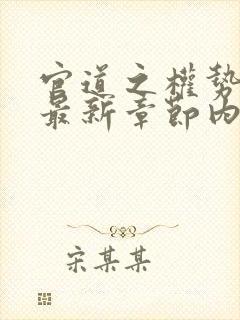 官道之權勢
最新章節内
宋某某